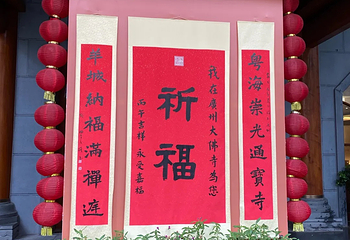 粤海崇光通寶寺
我在廣州大佛寺為您
祈福
丙午吉祥 永受嘉福
羊城納福滿禪庭